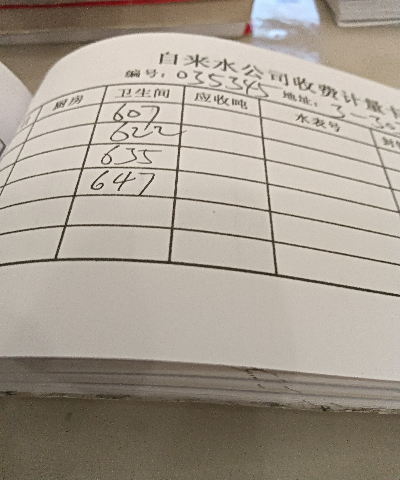 自来水公司收费计量卡
编号：035345 地址：3-30
厨房 卫生间 应收吨 水表号
607
622
635
647